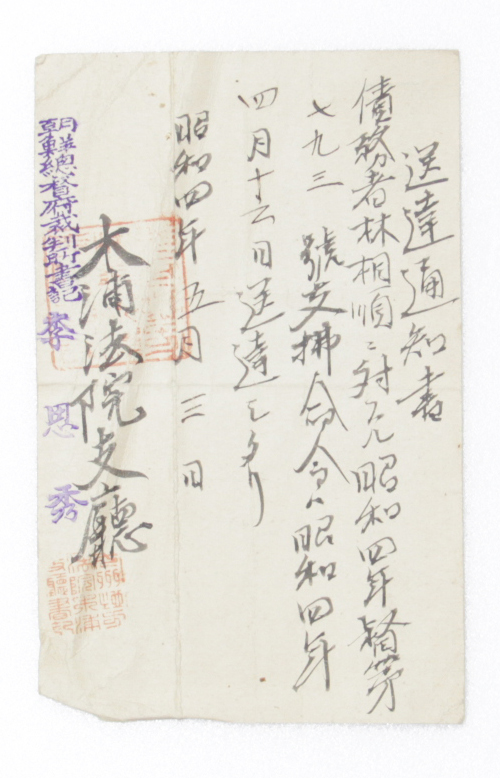 送達通知書
債務者林桐順ニ対スル昭和四年督第
七九三號支拂命令ハ昭和四年
四月十六日送達セラタリ
昭和四年五月三日
木浦法院支廳
朝鮮總督府裁判所書記 李恩秀